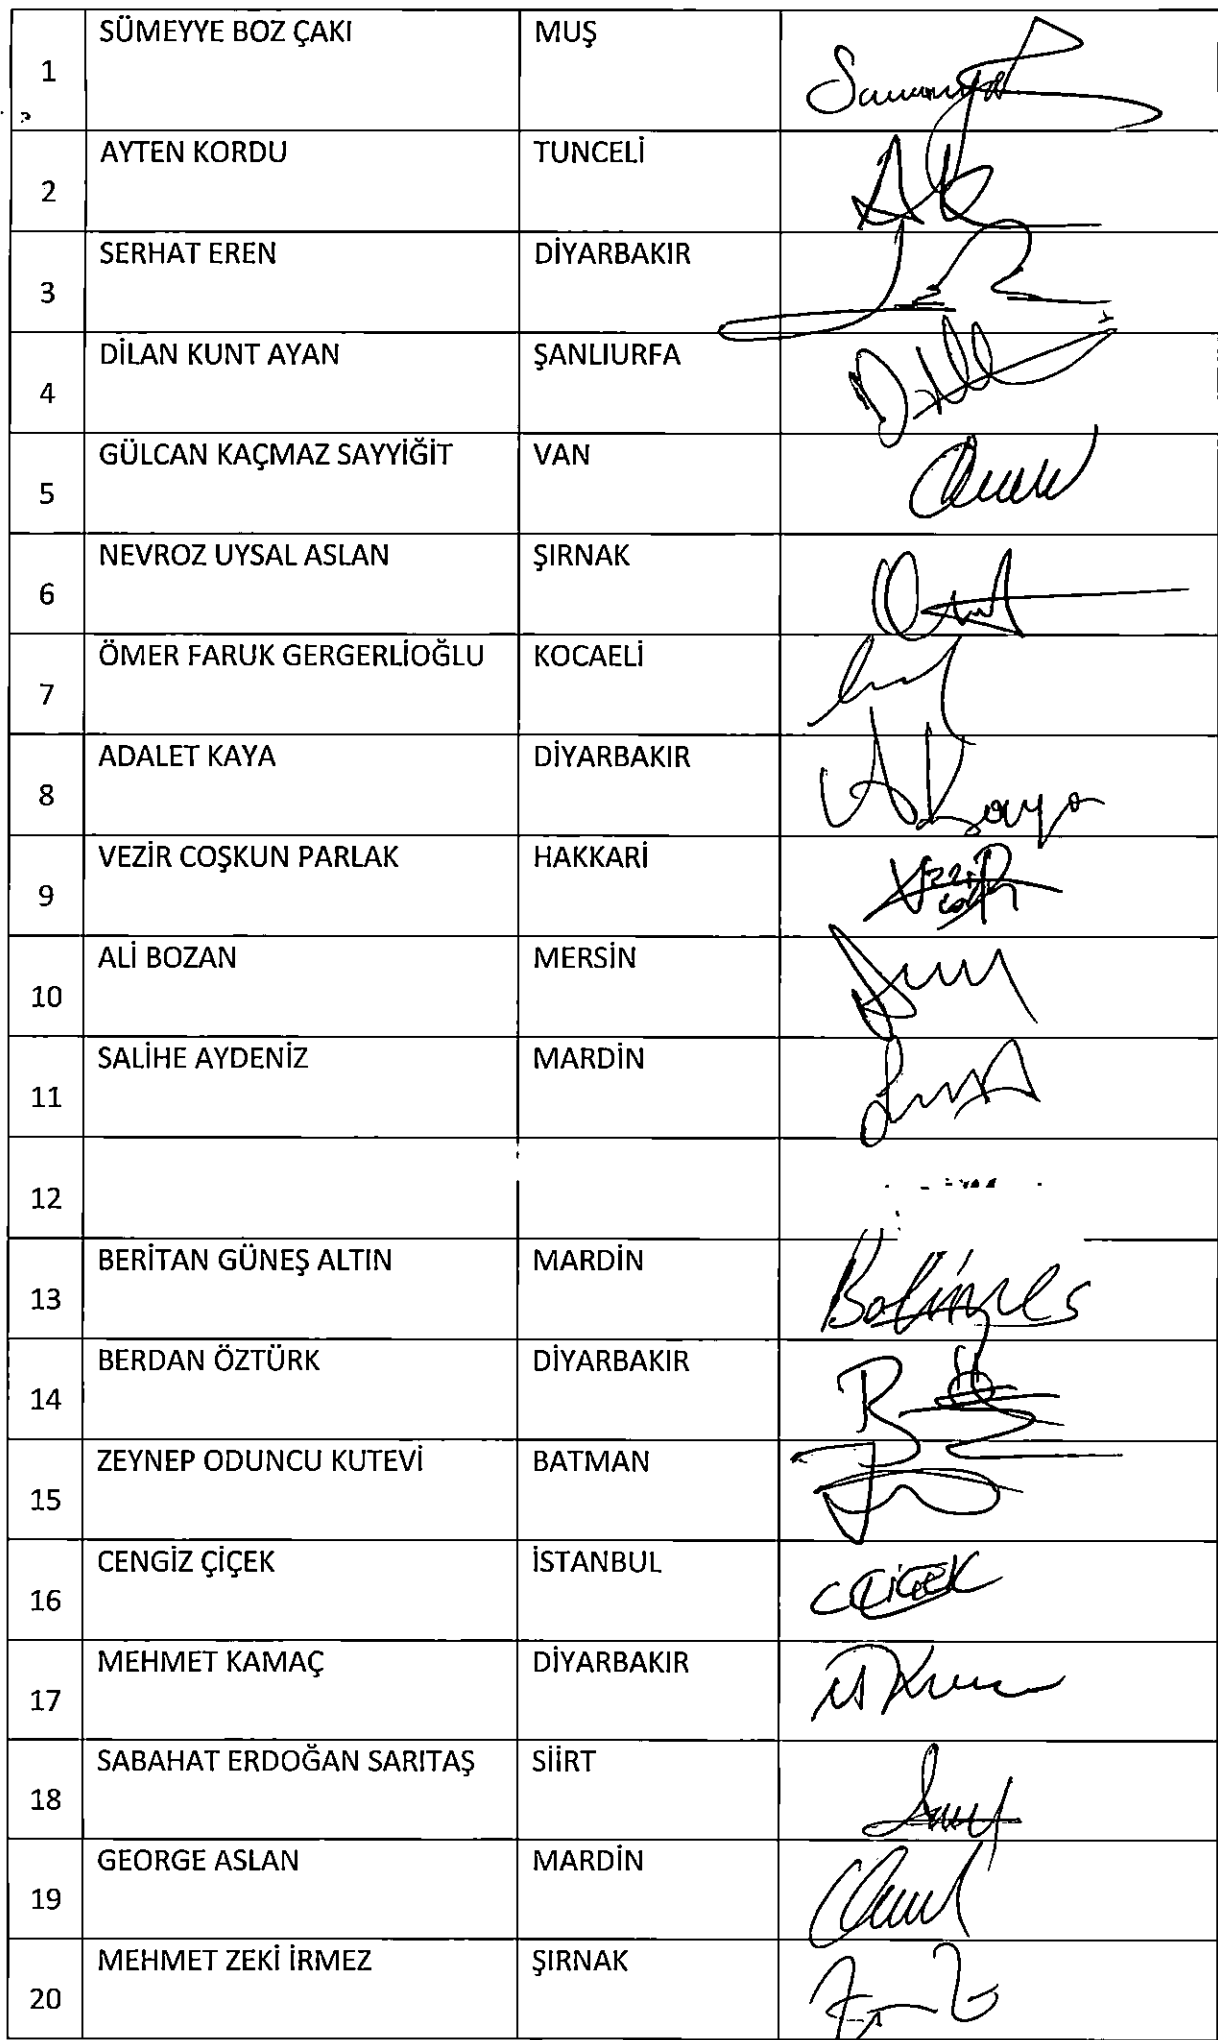 1 SÜMEYYE BOZ ÇAKI MUŞ
2 AYTEN KORDU TUNCELİ
3 SERHAT EREN DİYARBAKIR
4 DİLAN KUNT AYAN ŞANLIURFA
5 GÜLCAN KAÇMAZ SAYYİĞİT VAN
6 NEVROZ UYSAL ASLAN ŞIRNAK
7 ÖMER FARUK GERGERLİOĞLU KOCAELİ
8 ADALET KAYA DİYARBAKIR
9 VEZİR COŞKUN PARLAK HAKKARİ
10 ALİ BOZAN MERSİN
11 SALİHE AYDENİZ MARDİN
12
13 BERİTAN GÜNEŞ ALTIN MARDİN
14 BERDAN ÖZTÜRK DİYARBAKIR
15 ZEYNEP ODUNCU KUTEVİ BATMAN
16 CENGİZ ÇİÇEK İSTANBUL
17 MEHMET KAMAÇ DİYARBAKIR
18 SABAHAT ERDOĞAN SARITAŞ SİİRT
19 GEORGE ASLAN MARDİN
20 MEHMET ZEKİ İRMEZ ŞIRNAK